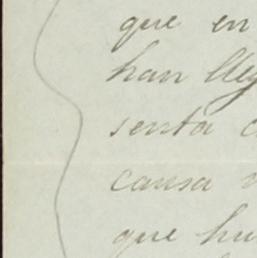 que en
han lleg
senta c
causa
que hu